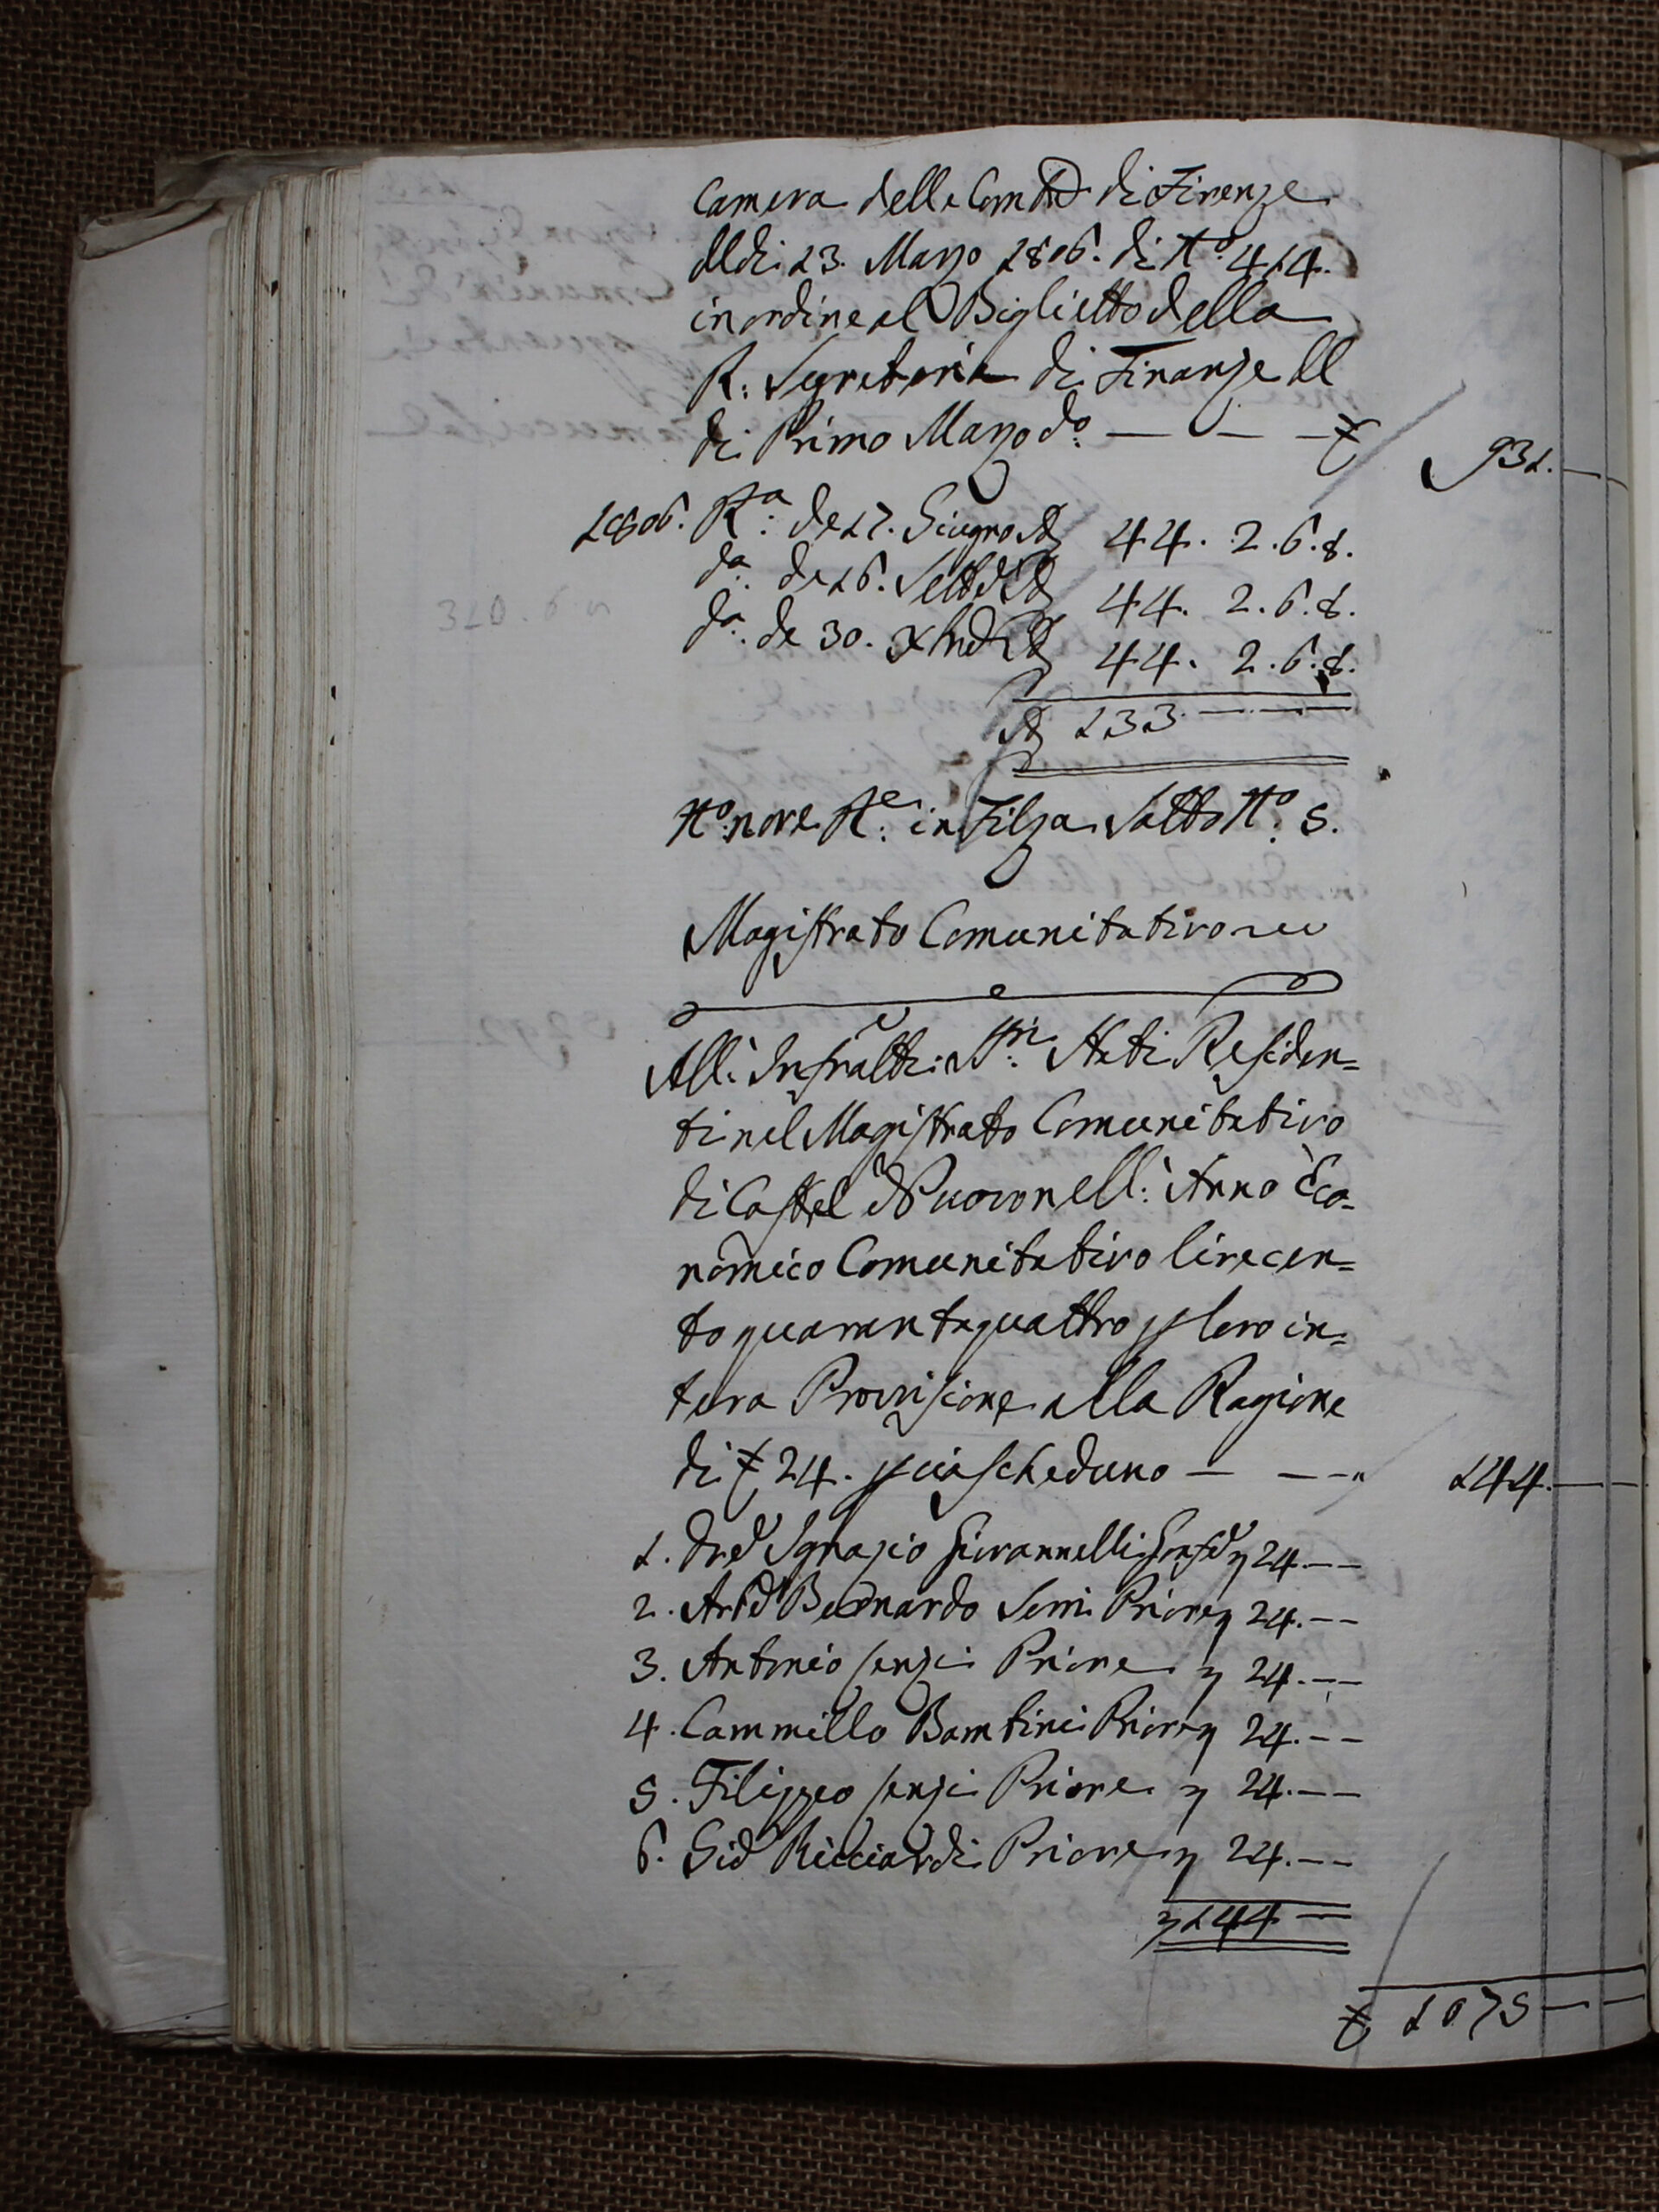 Camera delle Com.tà di Firenze
del dì 13. Marzo 1806. di N.o 414.
in ordine al Biglietto della
R: Segreteria di Finanze del
dì Primo Marzo d.o — — — £ 931. —
1806. R.a: de 17. Giugno 44. 2. 6. 8.
d.a: de 16. Sett.e 44. 2. 6. 8.
d.a: de 30. Xbre 44. 2. 6. 8.
133. — — —
N.o nove R.e: in Filza Sotto N.o: 5.
Magistrato Comunitativo
Alli Infratti: SS.ri: Stati Residen=
ti nel Magistrato Comunitativo
di Castel Nuovo nell: Anno Eco-
nomico Comunitativo lire cen=
to quarantaquattro p loro in=
tera Provvisione alla Ragione
di £ 24. p ciascheduno — — — " 144. — —
1. Ignazio Giovannelli Gonf.e " 24. — —
2. Bernardo Serri Priore " 24. — —
3. Antonio Priore " 24. — —
4. Cammillo Bambini Priore " 24. — —
5. Filippo Priore " 24. — —
6. Ricciardi Priore " 24. — —
" 144 —
£ 1075 — —